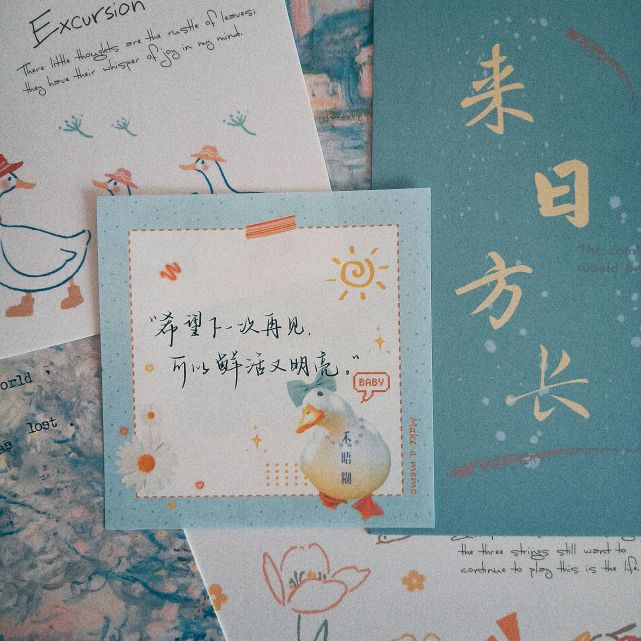 Excursion
There little thoughts are the rustle of leaves;
they have their whisper of joy in my mind.
来
日
方
长
The
would
"希望下一次再见,
可以鲜活又明亮。"
BABY
禾
唔
糊
Make a memo
orld .
as lost .
the three strings still want to
continue to play this is the life.